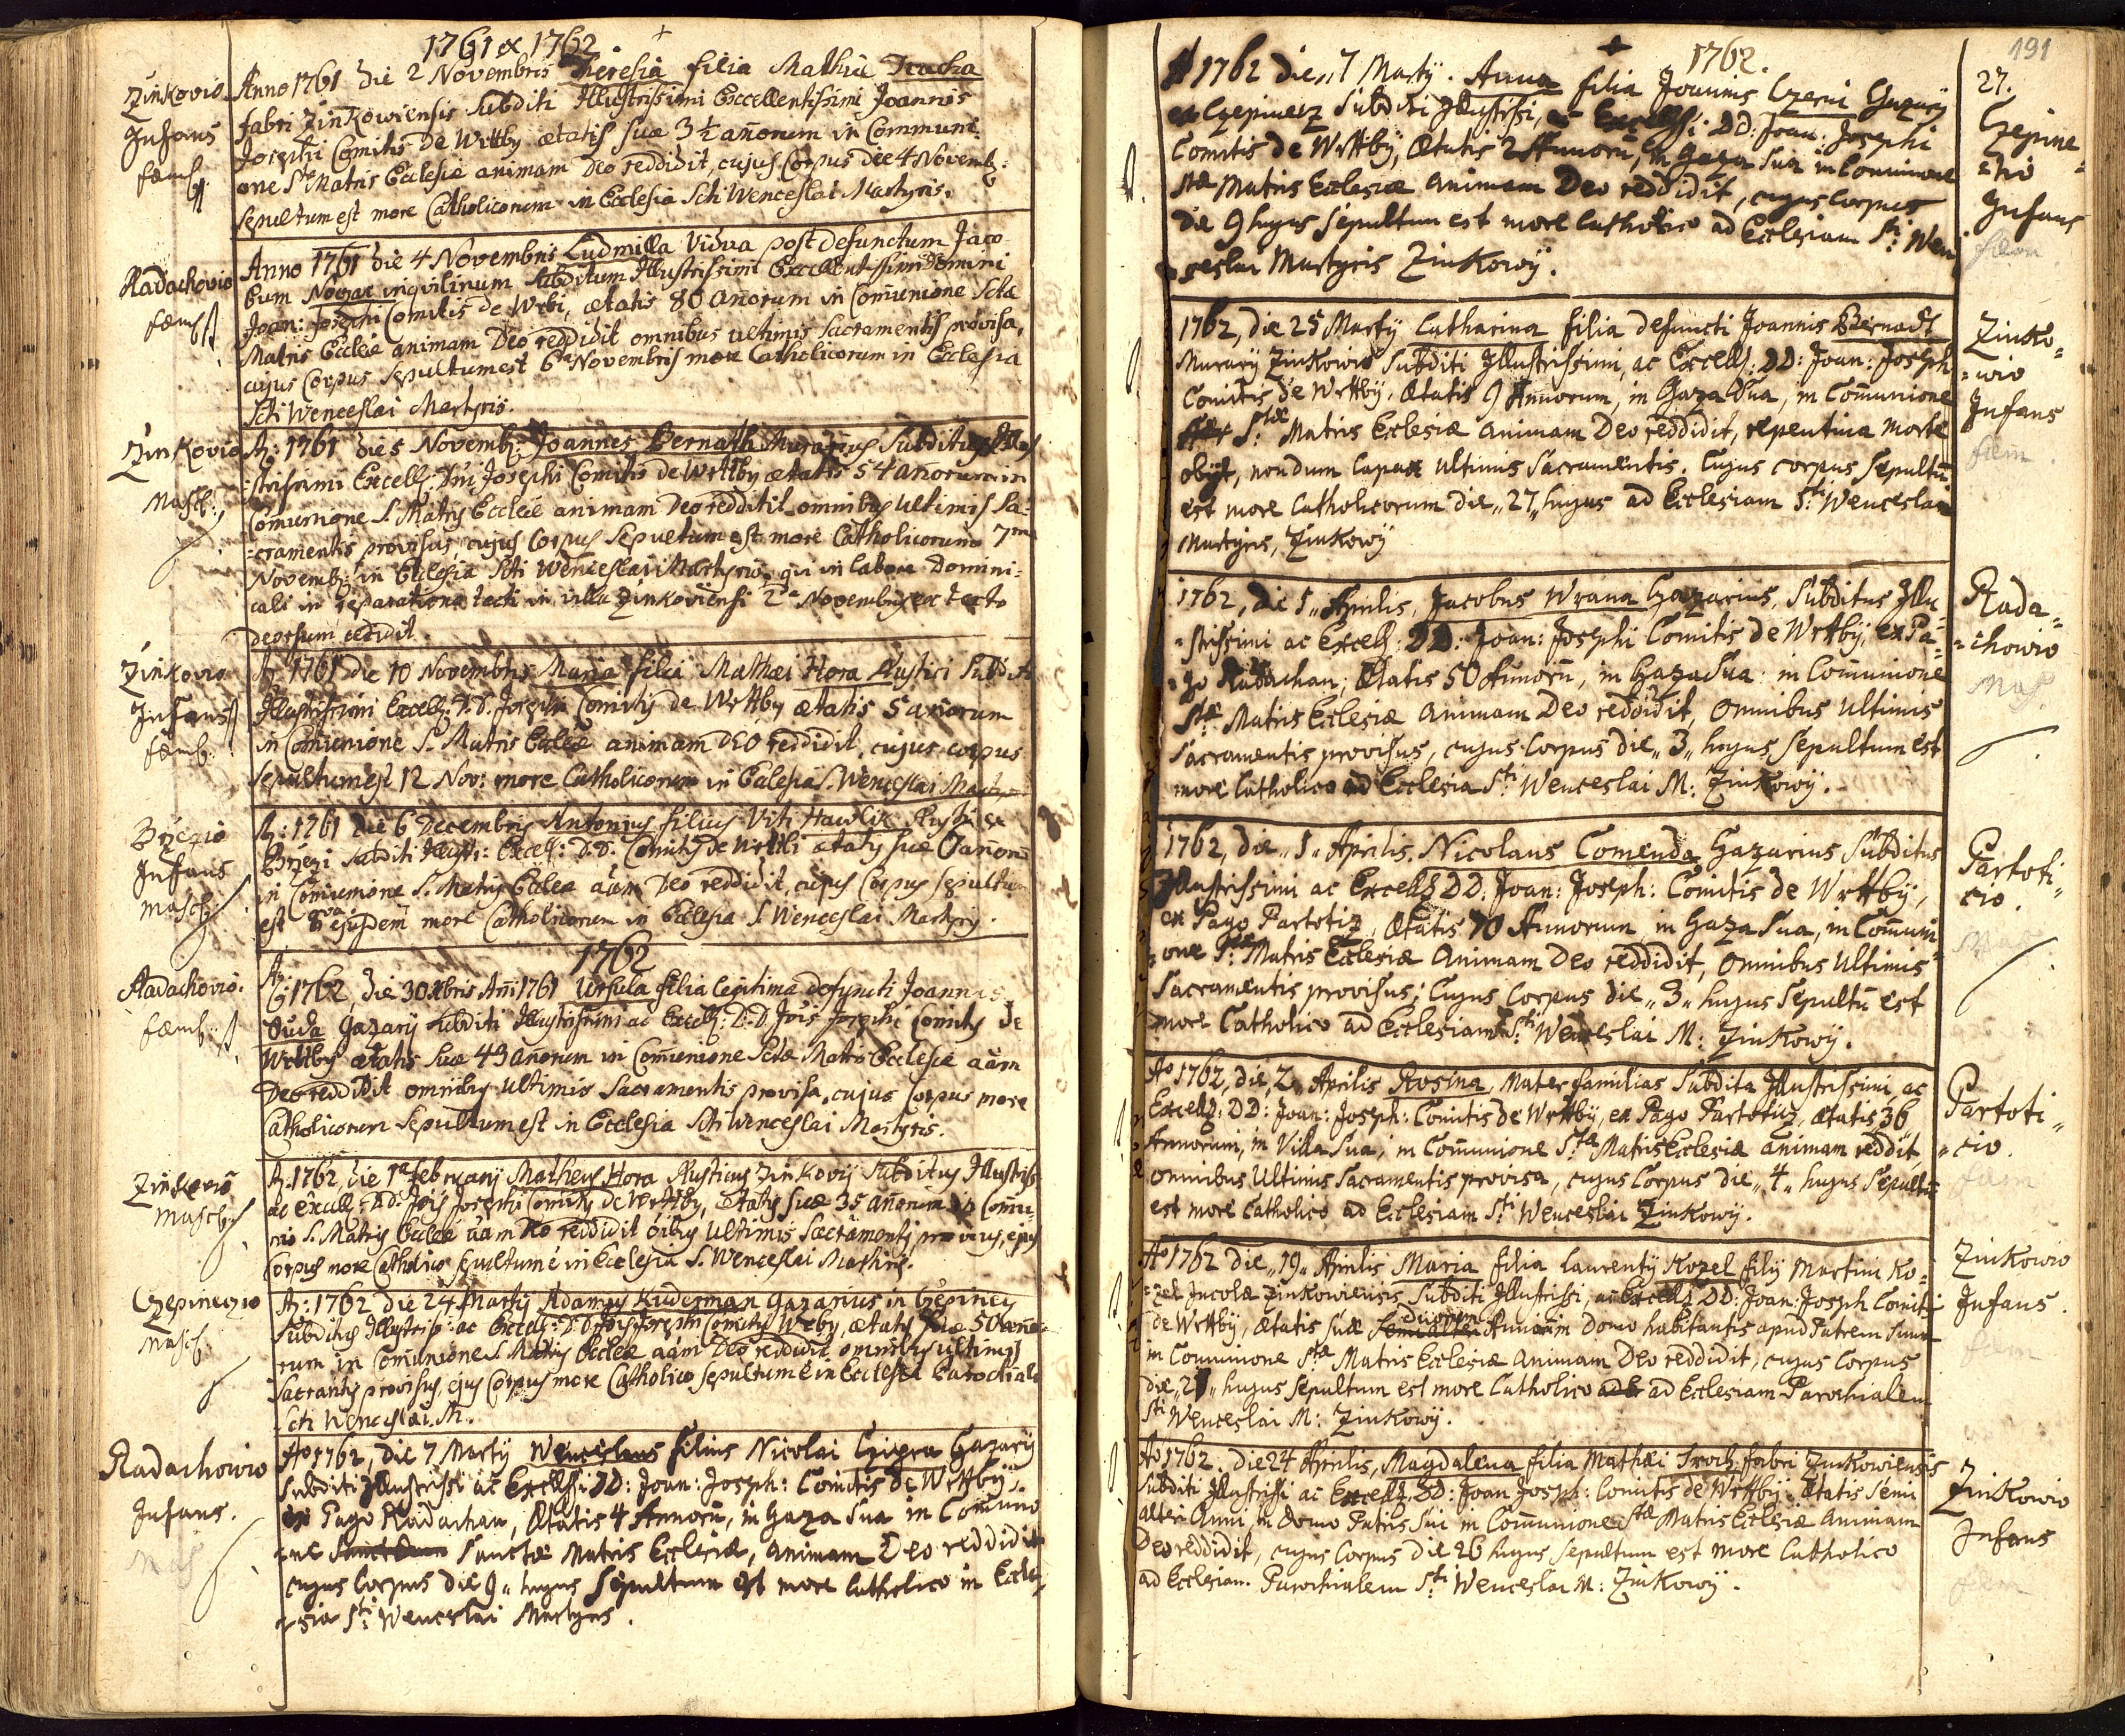 1761 & 1762
Zinkovio
Infans
fæm:
Anno 1761 die 2 Novembris Theresia filia Mathiæ
fabri Zinkowiensis subditi Illustrissimi Excellentissimi Joannis
Josephi Comitis De Wrttby ætatis suæ 3 ½ anorum in Communi
one Stæ Matris Ecclesiæ animam Deo reddidit, cujus Corpus die 4 Novemb:
sepultum est more Catholicorum in Ecclesia Scti Wenceslai Martyris.
Radachovio
fæm:
Anno 1761 die 4 Novembris Ludmilla Vidua post defunctum Jaco
bum Nowak inqvilinum subditum Illustrissimi Excellentissimi Domini
Joan: Josephi Comitis de Wrbi, ætatis 80 anorum in Comunione Sctæ
Matris Eccleiæ animam Deo reddidit omnibus ultimis sacramentis provisa,
cujus Corpus sepultum est 6ta Novembris more Catholicorum in Ecclesia
Scti Wenceslai Martyris.
Zinkovio
Masch:
Ao: 1761 die 5 Novemb: Joannes Bernath Murarius subditus Illu
strissimi Excell: Dni Josephi Comitis de Wrttby ætatis 54 anorum in
Comunione S. Matris Eccleiæ animam Deo reddidit omnibus ultimis Sa:
cramentis provisus, cujus Corpus sepultum est more Catholicorum 7ma
Novemb: in Ecclesia Scti Wenceslai Martyris, qvi in labore Domini:
cali in reparatione tecti in villa Zinkoviensi 2a Novembris ex tecto
deorsum cecidit.
Zinkovio
Infans
fæm:
Ao: 1761 die 10 Novembris Maria filia Mathæi Hora Rustici subditi
Illustrissimi Excell: D.D. Josephi Comitis de Wrttby ætatis 5 anorum
in Comunione S. Matris Eccleæ animam DEO reddidit, cujus corpus
sepultum est 12 Nov: more Catholicorum in Ecclesia S. Wenceslai Mart
Brzezio
Infans
Masch:
Ao: 1761 die 6 Decembris Antonius filius Viti Hawlik Rustici ex
Brzezi subditi Illustr: Excell: D.D. Comitis de Wrttbi ætatis suæ anoru
in Comunione S. Matris Eccleæ aam Deo reddidit, cujus Corpus sepultum
est 8va ejusdem more Catholicorum in Ecclesia S Wenceslai Martyris.
1762
Radachovio.
fæm:
Ao: 1762 die 30 Xbris Ani 1761 Ursula filia legitima defuncti Joannis
Duda Gazarij subditi Illustrissimi ac Excell: D.D. Jois Josephi Comitis de
Wrttby ætatis suæ 43 anorum in Comunione Sctæ Matris Ecclesiæ aam
Deo reddidit omnibus ultimis Sacramentis provisa, cujus Corpus more
Catholicorum sepultum est in Ecclesia Scti Wenceslai Martyris.
Zinkovio
Masch:
Ao: 1762, die 1a februarij Matheus Hora Rusticus Zinkovij subditus Illustriss:
ac excell: D.D. Jois Josephi Comitis de Wrttby, ætatis suæ 35 anorum in Comu:
nio S. Matris Eccleæ aam Deo reddidit oibus ultimis Sacramentis provisus, ejus
Corpus more Catholico sepultum e in Ecclesia S. Wenceslai Martiris.
Czepineczio
Masch:
Ao: 1762 die 24 Martij Adamus Kuderman Gazarius in Czepincy
subditus Illustriss: ac Excell: D.D. Jois Josephi Comitis Wrby, ætatis suæ 50 ano
rum in Comunione S. Matris Eccleæ aam Deo reddidit omnibus ultimis
Sacrantis provisus, ejus Corpus more Catholico sepultum e in Ecclesia Parochiale
Scti Wenceslai. M.
Radachowio
Infans.
Mas
Ao 1762, die 7 Martij Wenceslaus filius Nicolai Gazarij
subditi Illustrissi ac Excellsi: DD: Joan: Joseph: Comitis de Wrttbij
ex Pago Radachan, Ætatis 4 Annoru, in Gaza sua in Communio
ne Sanctæ Matris Ecclesiæ, animam Deo reddidit
cujus Corpus die 9 hujus sepultum est more Catholico in Eccle
sia Sti Wenceslai Martyris.
191
1762.
A 1762 die 7 Martij. Anna filia Joannis Czerni Gazarij
ex Czepinecz subditi Illustrissi, ac Excellsi: DD: Joan: Josephi
Comitis de Wrttbij, Ætatis 2 Annoru, in Gaza sua in Comunione
stæ Matris Ecclesiæ animam Deo reddidit, cujus corpus
die 9 hujus sepultum est more Catholico ad Ecclesiam Sti Wen
ceslai Martyris Zinkowij.
27.
Czepine
czio
Infans
fæm
1762, die 25 Martij Catharina filia defuncti Joannis Bernadt
Murarij Zinkowio subditi Illustrissimi, ac Excells: DD: Joan: Joseph
Comitis de Wrttbij, Ætatis 9 Annorum, in Gaza sua, in Comunione
Stæ Matris Ecclesiæ animam Deo reddidit, repentina morte
obijt, nondum capax ultimis Sacramentis. Cujus corpus sepultu
est more Catholicorum die 27 hujus ad Ecclesiam Sti Wenceslai
Martyris, Zinkowij
Zinko
wio
Infans
fæm.
1762, die 1 Aprilis, Jacobus Wrana Gazarius, Subditus Illu
strissimi ac Excells: DD: Joan: Josephi Comitis de Wrttbij, ex Pa
go Radachan; Ætatis 50 Annoru, in Gaza sua: in Comunione
Stæ Matris Ecclesiæ animam Deo reddidit, omnibus ultimis
Sacramentis provisus, cujus Corpus die 3 hujus sepultum est
more Catholico ad Ecclesia Sti Wenceslai M: Zinkowij.
Rada
chowio
Mas
1762, die 1 Aprilis. Nicolaus Comenda Gazarius Subditus
Illustrissimi ac Excells DD: Joan: Joseph: Comitis de Wrttbij,
ex Pago Partotiz, Ætatis 70 Annorum in Gaza sua, in Comuni
one Stæ Matris Ecclesiæ animam Deo reddidit, omnibus ultimis
Sacramentis provisus; Cujus Corpus die 3 hujus sepultu est
more Catholico ad Ecclesiam Sti Wenceslai M: Zinkowij.
Partoti
cio.
Mas
Ao 1762, die 2 Aprilis Rosina, Mater familias Subdita Illustrissimi, ac
Excells: DD: Joan: Joseph: Comitis de Wrttbij, ex Pago Partotiz, ætatis 36
Annorum, in Villa sua, in Comunione Stæ Matris Ecclesiæ animam reddit,
omnibus Ultimis Sacramentis provisa, cujus Corpus die 4 hujus Sepultu
est more Catholico ad Ecclesiam Sti Wenceslai Zinkowij.
Partoti
cio.
fæm
Ao 1762 die 19 Aprilis Maria filia Laurentij Kozel filij Martini Ko
zel Incolæ Zinkowiensis Subditi Illustrissi, ac Excells DD: Joan: Josph Comiti
de Wrttbij, Ætatis suæ Semialteri Duorum Annorum Domo habitantis apud Patrem suum
in Comunione Stæ Matris Ecclesiæ animam Deo reddidit, cujus Corpus
die 21 hujus sepultum est more Catholico ad Ecclesiam Parochialem
Sti Wenceslai M: Zinkowij.
Zinkowio
Infans.
fæm
Ao 1762. die 24 Aprilis, Magdalena filia Mathæi fabri Zinkowiensis
Subditi Illustrissi ac Excells: DD: Joan Josph: Comitis de Wrttbij Ætatis Semi
alteri Anni, in Domo Patris Sui in Comunione Stæ Matris Ecclesiæ animam
Deo reddidit, cujus Corpus die 26 hujus sepultum est more Catholico
ad Ecclesiam Parochialem Sti Wenceslai M: Zinkowij.
Zinkowio
Infans
fæm